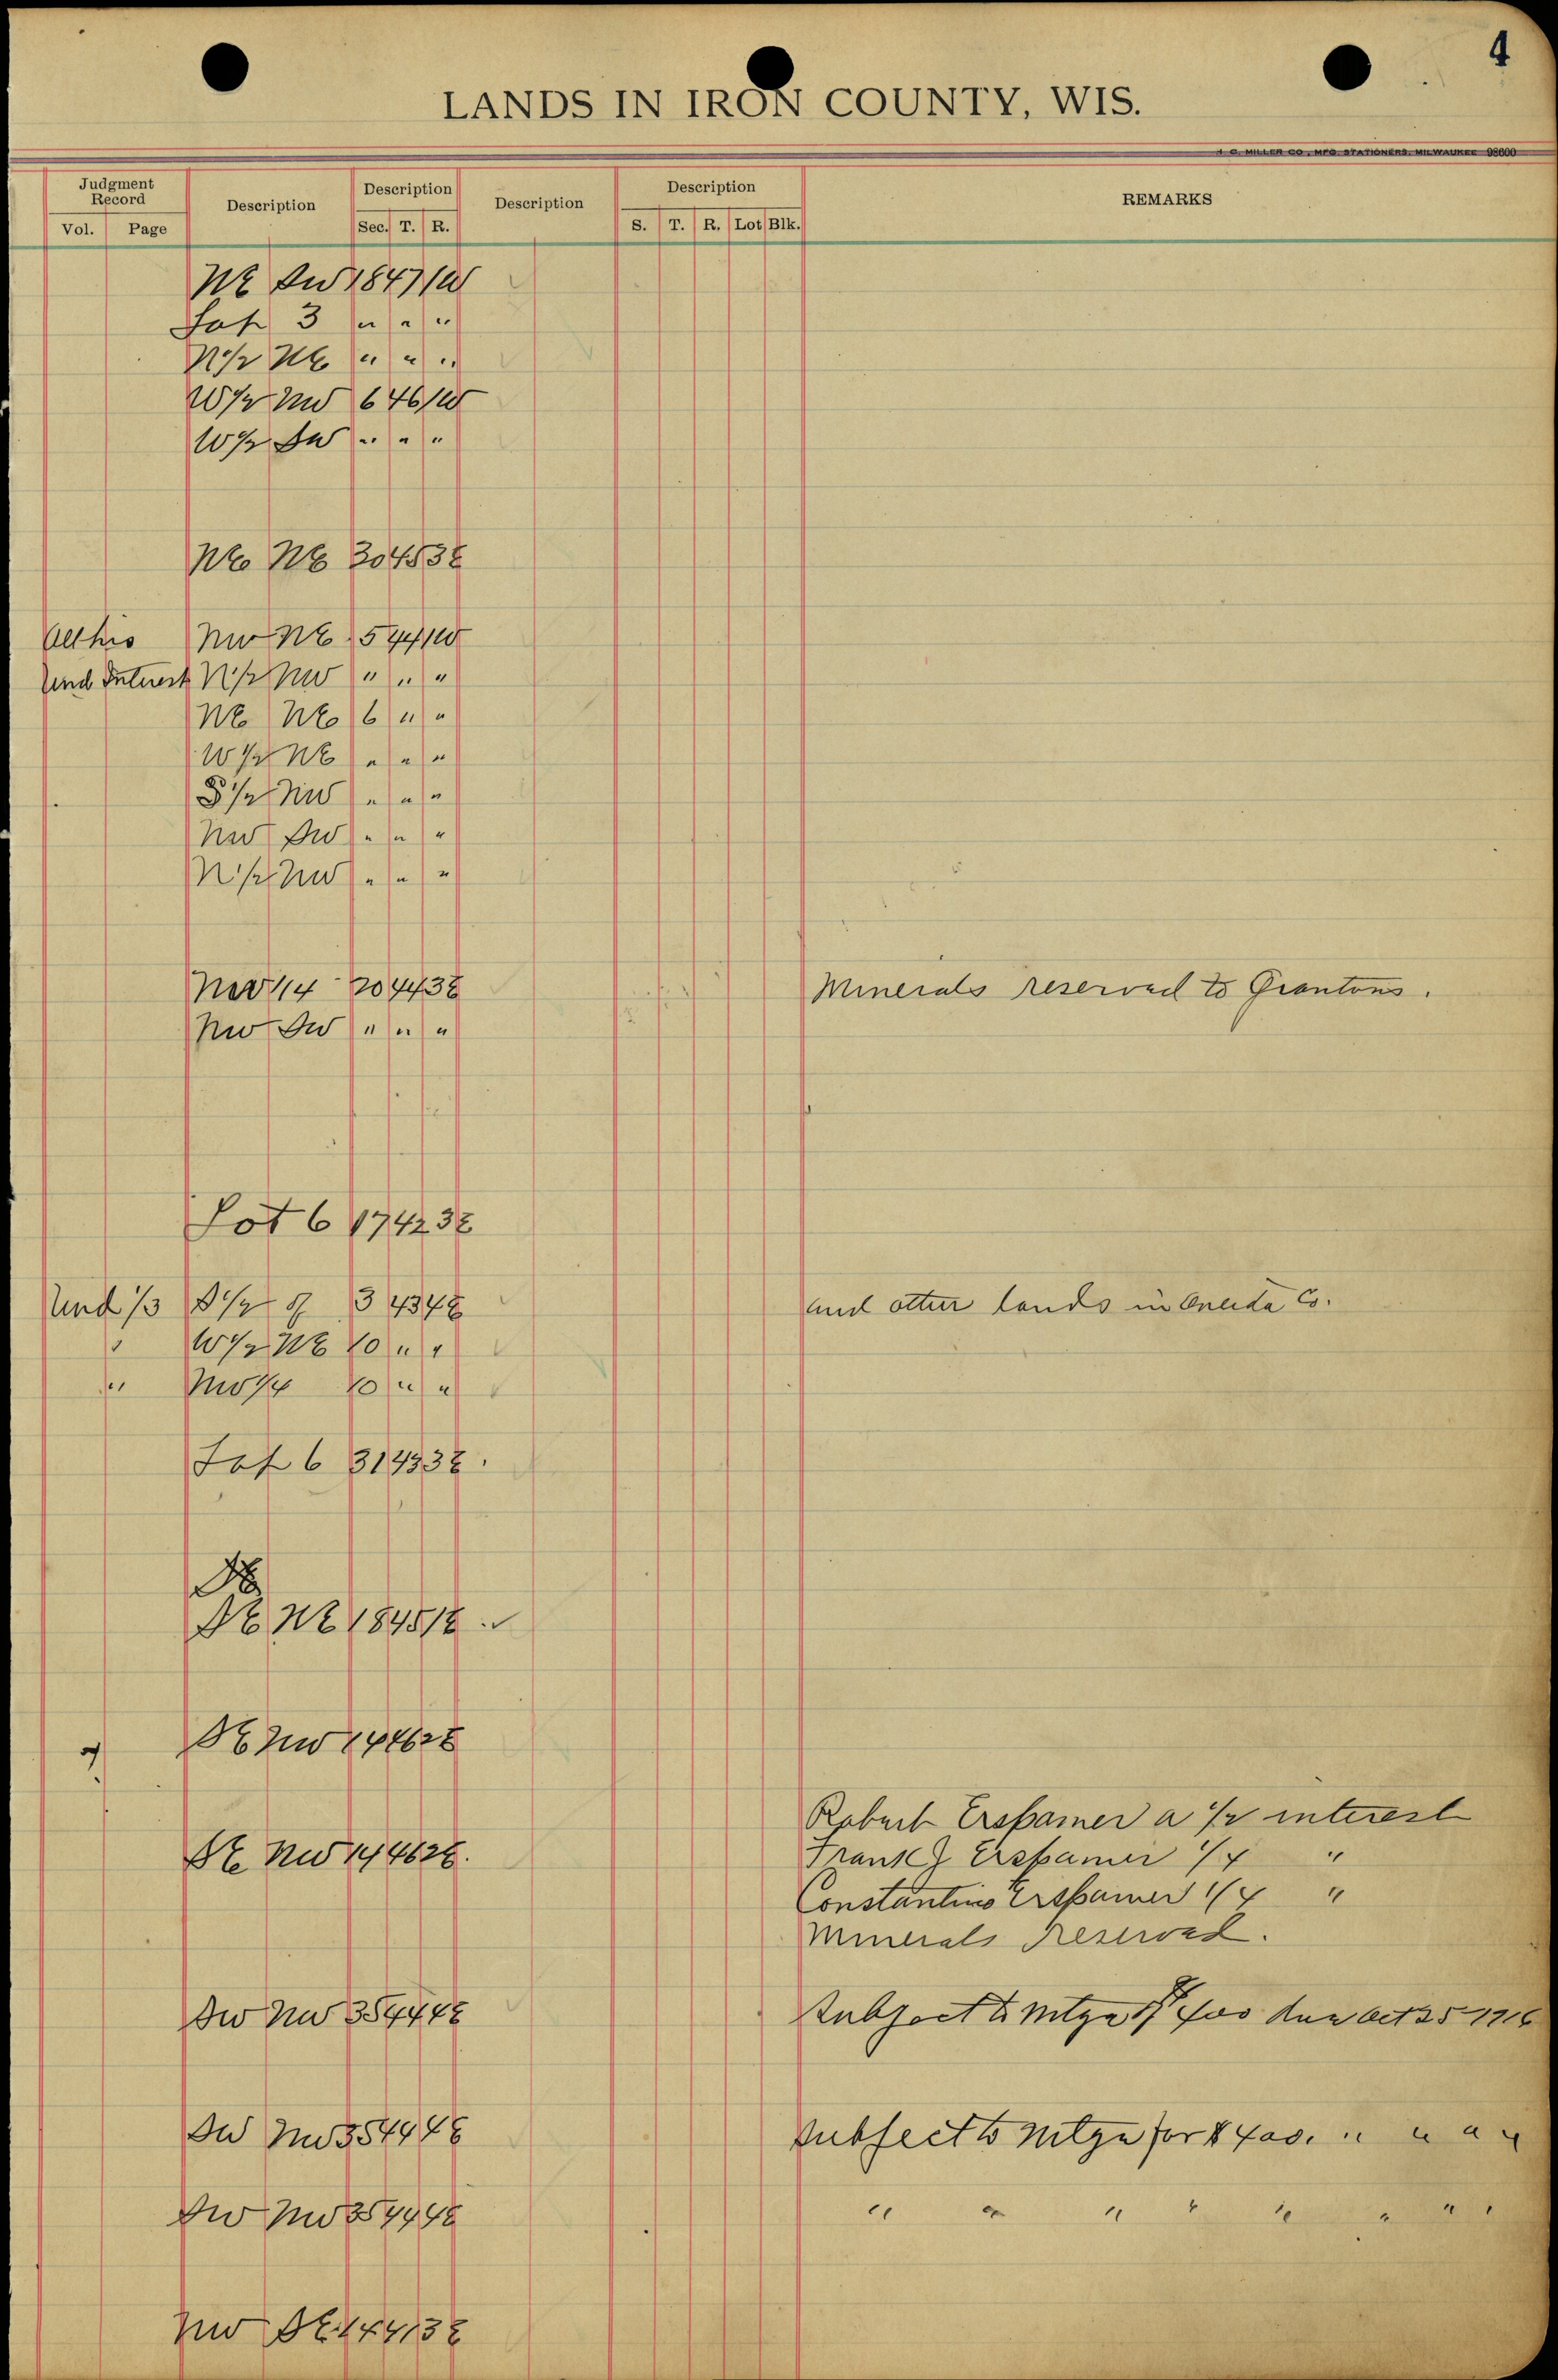 4
LANDS IN IRON COUNTY, WIS.
H. C. MILLER CO., MFG. STATIONERS, MILWAUKEE 98600
Judgment Record
Vol. Page
Description
Description
Sec. T. R.
Description
Description
S. T. R. Lot Blk.
REMARKS
NE SW 18 47 1W
Lot 3 " " "
N 1/2 NE " " "
W 1/2 NW 6 46 1W
W 1/2 SW " " "
NE NE 30 45 3E
All his NW NE 5 44 1W
Und Interest N 1/2 NW " " "
NE NE 6 " "
W 1/2 NE " " "
S 1/2 NW " " "
NW SW " " "
N 1/2 NW " " "
NW 1/4 20 44 3E Minerals reserved to Grantors.
NW SW " " "
Lot 6 17 42 3E
Und 1/3 S 1/2 of 3 43 4E and other lands in Oneida Co.
" W 1/2 NE 10 " "
" NW 1/4 10 " "
Lot 6 31 43 3E.
SE
SE NE 18 45 1E
SE NW 14 46 2E
Robert Erspamer a 1/2 interest
SE NW 14 46 2E. Frank J Erspamer 1/4 "
Constantino Erspamer 1/4 "
Minerals reserved.
SW NW 35 44 4E Subject to Mtge of due Oct 25 1916
SW NW 35 44 4E Subject to Mtge for $400. " " " "
SW NW 35 44 4E " " " " " " " "
NW SE 14 41 3E